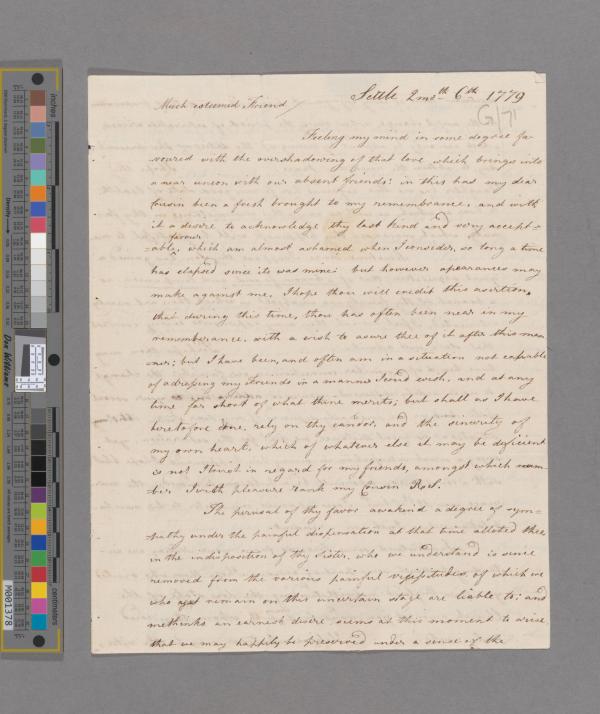 Settle 2mo.th 6th 1779
G/71
Much esteemed Friend/
Feeling my mind in some degree fa-
voured with the overshadowing of that love which brings into
a near union with our absent friends: in this has my dear
Cousin been a fresh brought to my remembrance, and with
it a desire to acknowledge thy last kind and very accept=
favour
able, which am almost ashamed when I consider, so long a time
has elapsed since its was mine: but however apearances may
make against me, I hope thou will credit this asertion,
that during this time, thou has often been near in my
rememberance, with a wish to asure thee of it after this man
ner; but I have been, and often am in a situation not capable
of adressing my Friends in a manner I coud wish, and at any
time far short of what thine merits; but shall as I have
heretofore done, rely on thy candor, and the sincerity of
my own heart, which of whatever else it may be deficient
is not I trust in regard for my friends, amongst which num-
ber I with pleasure rank my Cousin
The perusal of thy favor awakind a degree of sym=
pathy under the painful dispensation at that time alloted thee,
in the indisposition of thy Sister, who we understand is since
removed from the various painful visissitudes, of which we
who yet remain on this uncertain stage are liable to; and
methinks an earnest disire seems at this moment to arise
that we may happily be preserved under a sense of the
inches
centimeters
Don Williams
M001378